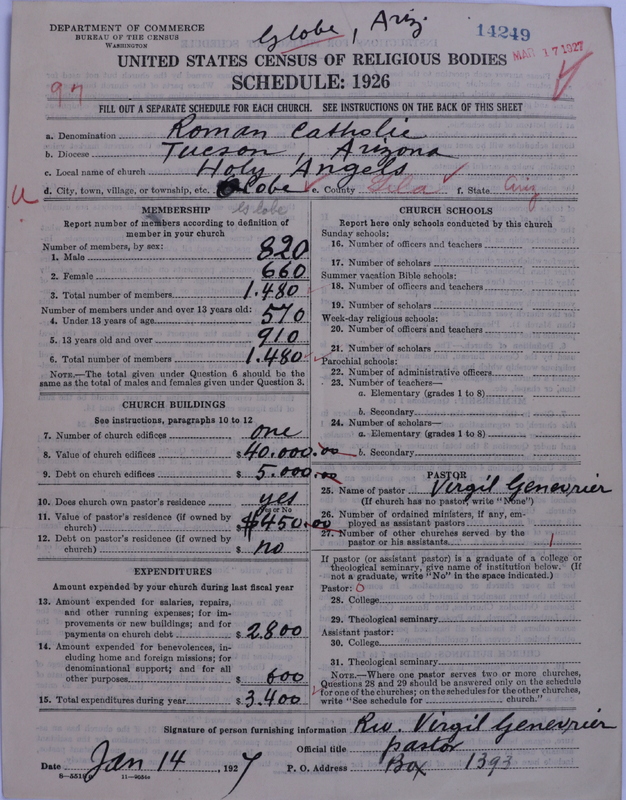 DEPARTMENT OF COMMERCE
BUREAU OF THE CENSUS
WASHINGTON
Globe, Ariz.
14249
MAR 17 1927
UNITED STATES CENSUS OF RELIGIOUS BODIES
SCHEDULE: 1926
97
FILL OUT A SEPARATE SCHEDULE FOR EACH CHURCH. SEE INSTRUCTIONS ON THE BACK OF THIS SHEET
a. Denomination Roman Catholic
b. Diocese Tucson, Arizona
c. Local name of church Holy Angels
d. City, town, village, or township, etc. Globe e. County Gila f. State Ariz
Globe
MEMBERSHIP
Report number of members according to definition of
member in your church
Number of members, by sex:
1. Male 820
2. Female 660
3. Total number of members 1.480
Number of members under and over 13 years old:
4. Under 13 years of age 570
5. 13 years old and over 910
6. Total number of members 1.480
NOTE.—The total given under Question 6 should be
same as the total of males and females given under Question 3.
CHURCH BUILDINGS
See instructions, paragraphs 10 to 12
7. Number of church edifices one
8. Value of church edifices $ 40.000.00
9. Debt on church edifices $ 5.000.00
10. Does church own pastor's residence yes
Yes or No
11. Value of pastor's residence (if owned by
church) $ 450.00
12. Debt on pastor's residence (if owned by
church) $ no
EXPENDITURES
Amount expended by your church during last fiscal year
13. Amount expended for salaries, repairs,
and other running expenses; for im-
provements or new buildings; and for
payments on church debt $ 2.800
14. Amount expended for benevolences, in-
cluding home and foreign missions; for
denominational support; and for all
other purposes $ 600
15. Total expenditures during year $ 3.400
CHURCH SCHOOLS
Report here only schools conducted by this church
Sunday schools:
16. Number of officers and teachers
17. Number of scholars
Summer vacation Bible schools:
18. Number of officers and teachers
19. Number of scholars
Week-day religious schools:
20. Number of officers and teachers
21. Number of scholars
Parochial schools:
22. Number of administrative officers
23. Number of teachers—
a. Elementary (grades 1 to 8)
b. Secondary
24. Number of scholars—
a. Elementary (grades 1 to 8)
b. Secondary
PASTOR
25. Name of pastor Virgil Genevrier
(If church has no pastor, write "None")
26. Number of ordained ministers, if any, em-
ployed as assistant pastors
27. Number of other churches served by the
pastor or his assistants 1
If pastor (or assistant pastor) is a graduate of a college or
theological seminary, give name of institution below. (If
not a graduate, write "No" in the space indicated.)
Pastor: 0
28. College
29. Theological seminary
Assistant pastor:
30. College
31. Theological seminary
NOTE.—Where one pastor serves two or more churches,
Questions 28 and 29 should be answered only on the schedule
for one of the churches; on the schedules for the other churches,
write "See schedule for church."
Signature of person furnishing information Rev. Virgil Genevrier
Official title pastor
Date Jan 14, 1927 P. O. Address Box 1393